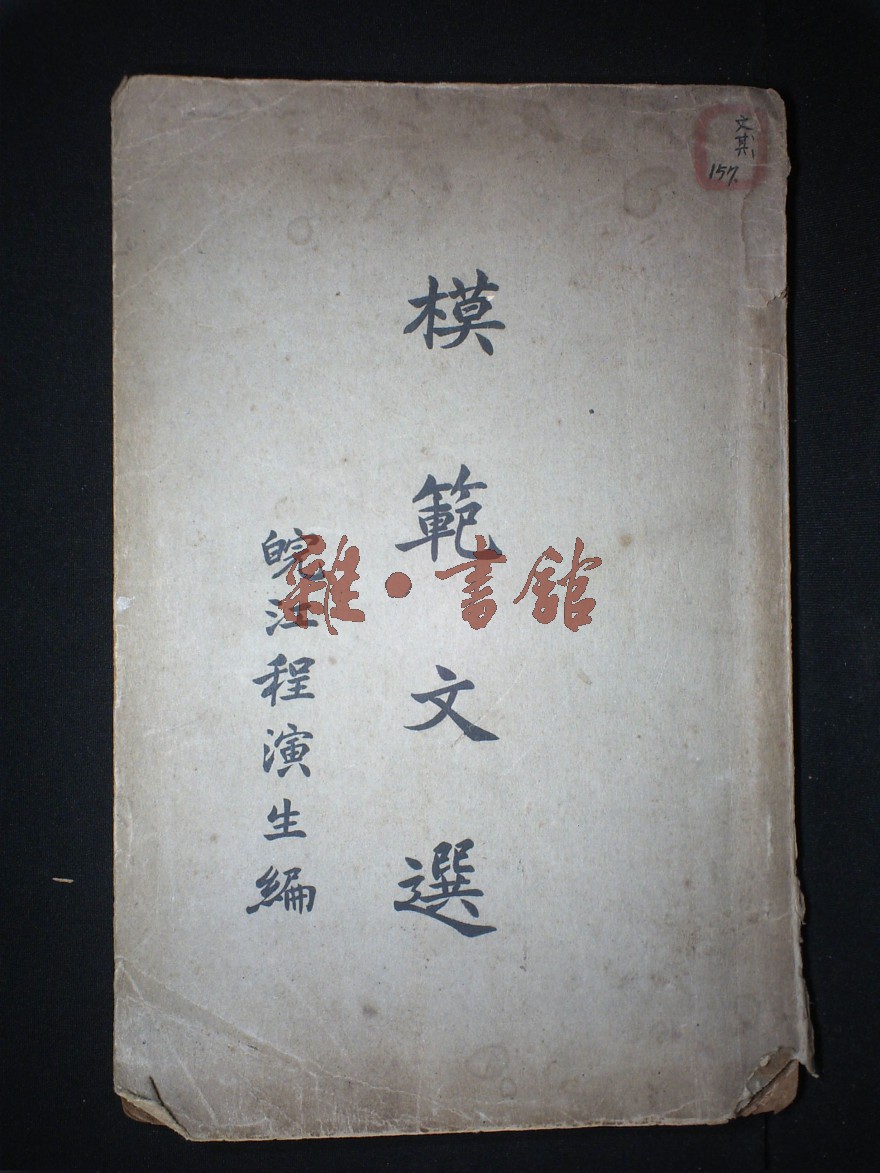 模範文選
皖江程演生編
文其
157.
雜·書館